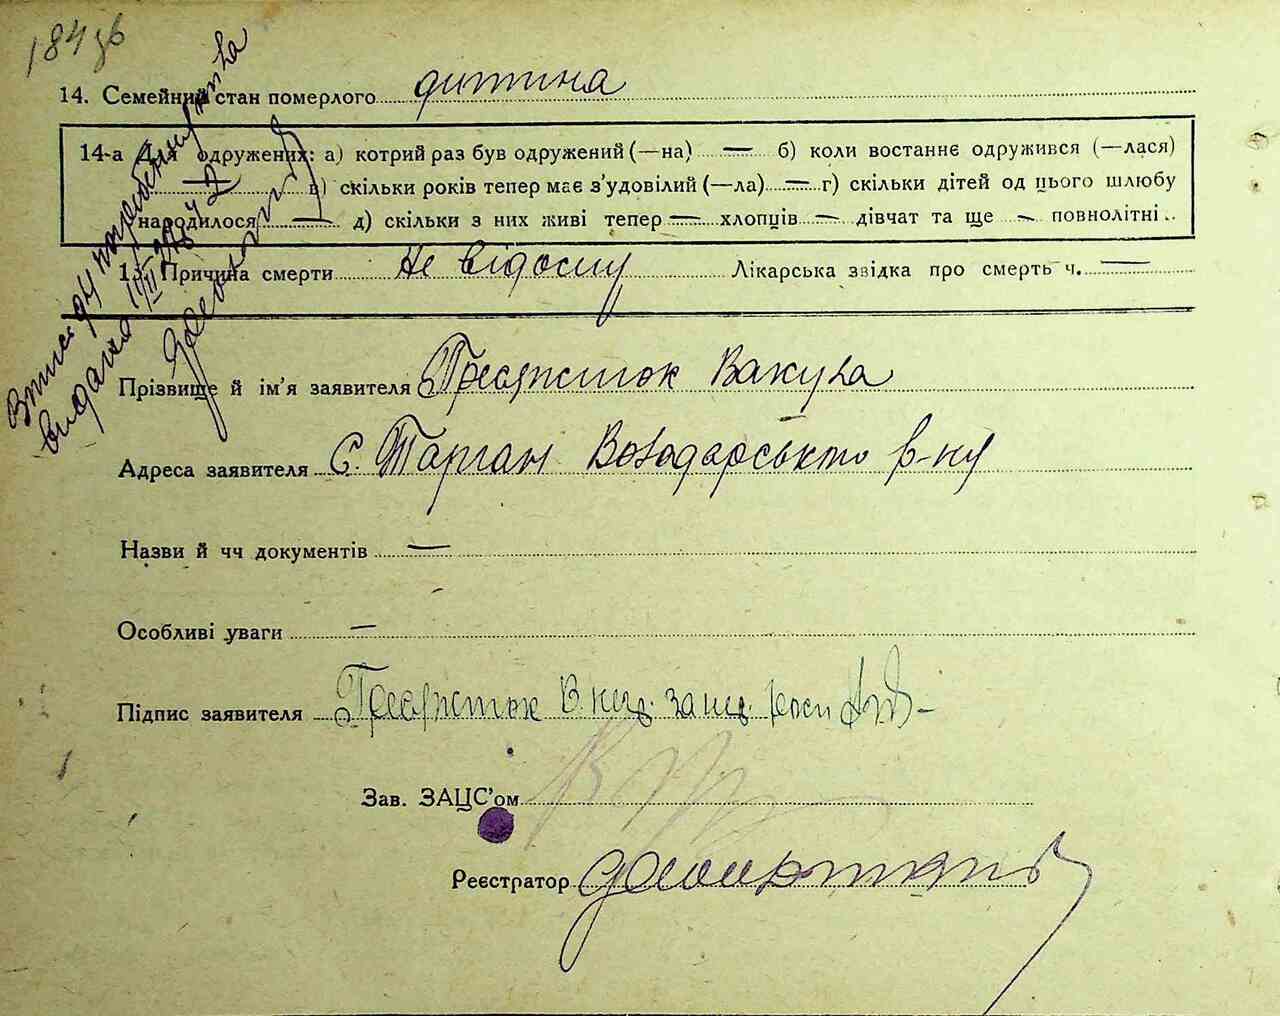 184 зв
14. Семейний стан померлого дитина
14-а Для одружених: а) котрий раз був одружений (—на) — б) коли востаннє одружився (—лася)
— в) скільки років тепер має з'удовілий (—ла) — г) скільки дітей од цього шлюбу
народилося — д) скільки з них живі тепер — хлопців — дівчат та ще — повнолітні
15. Причина смерти Не відому Лікарська звідка про смерть ч. —
Прізвище й ім'я заявителя Вакула
Адреса заявителя с. Тарган Володарського р-ну
Назви й чч документів —
Особливі уваги —
Підпис заявителя
Зав. ЗАЦС'ом
Реєстратор